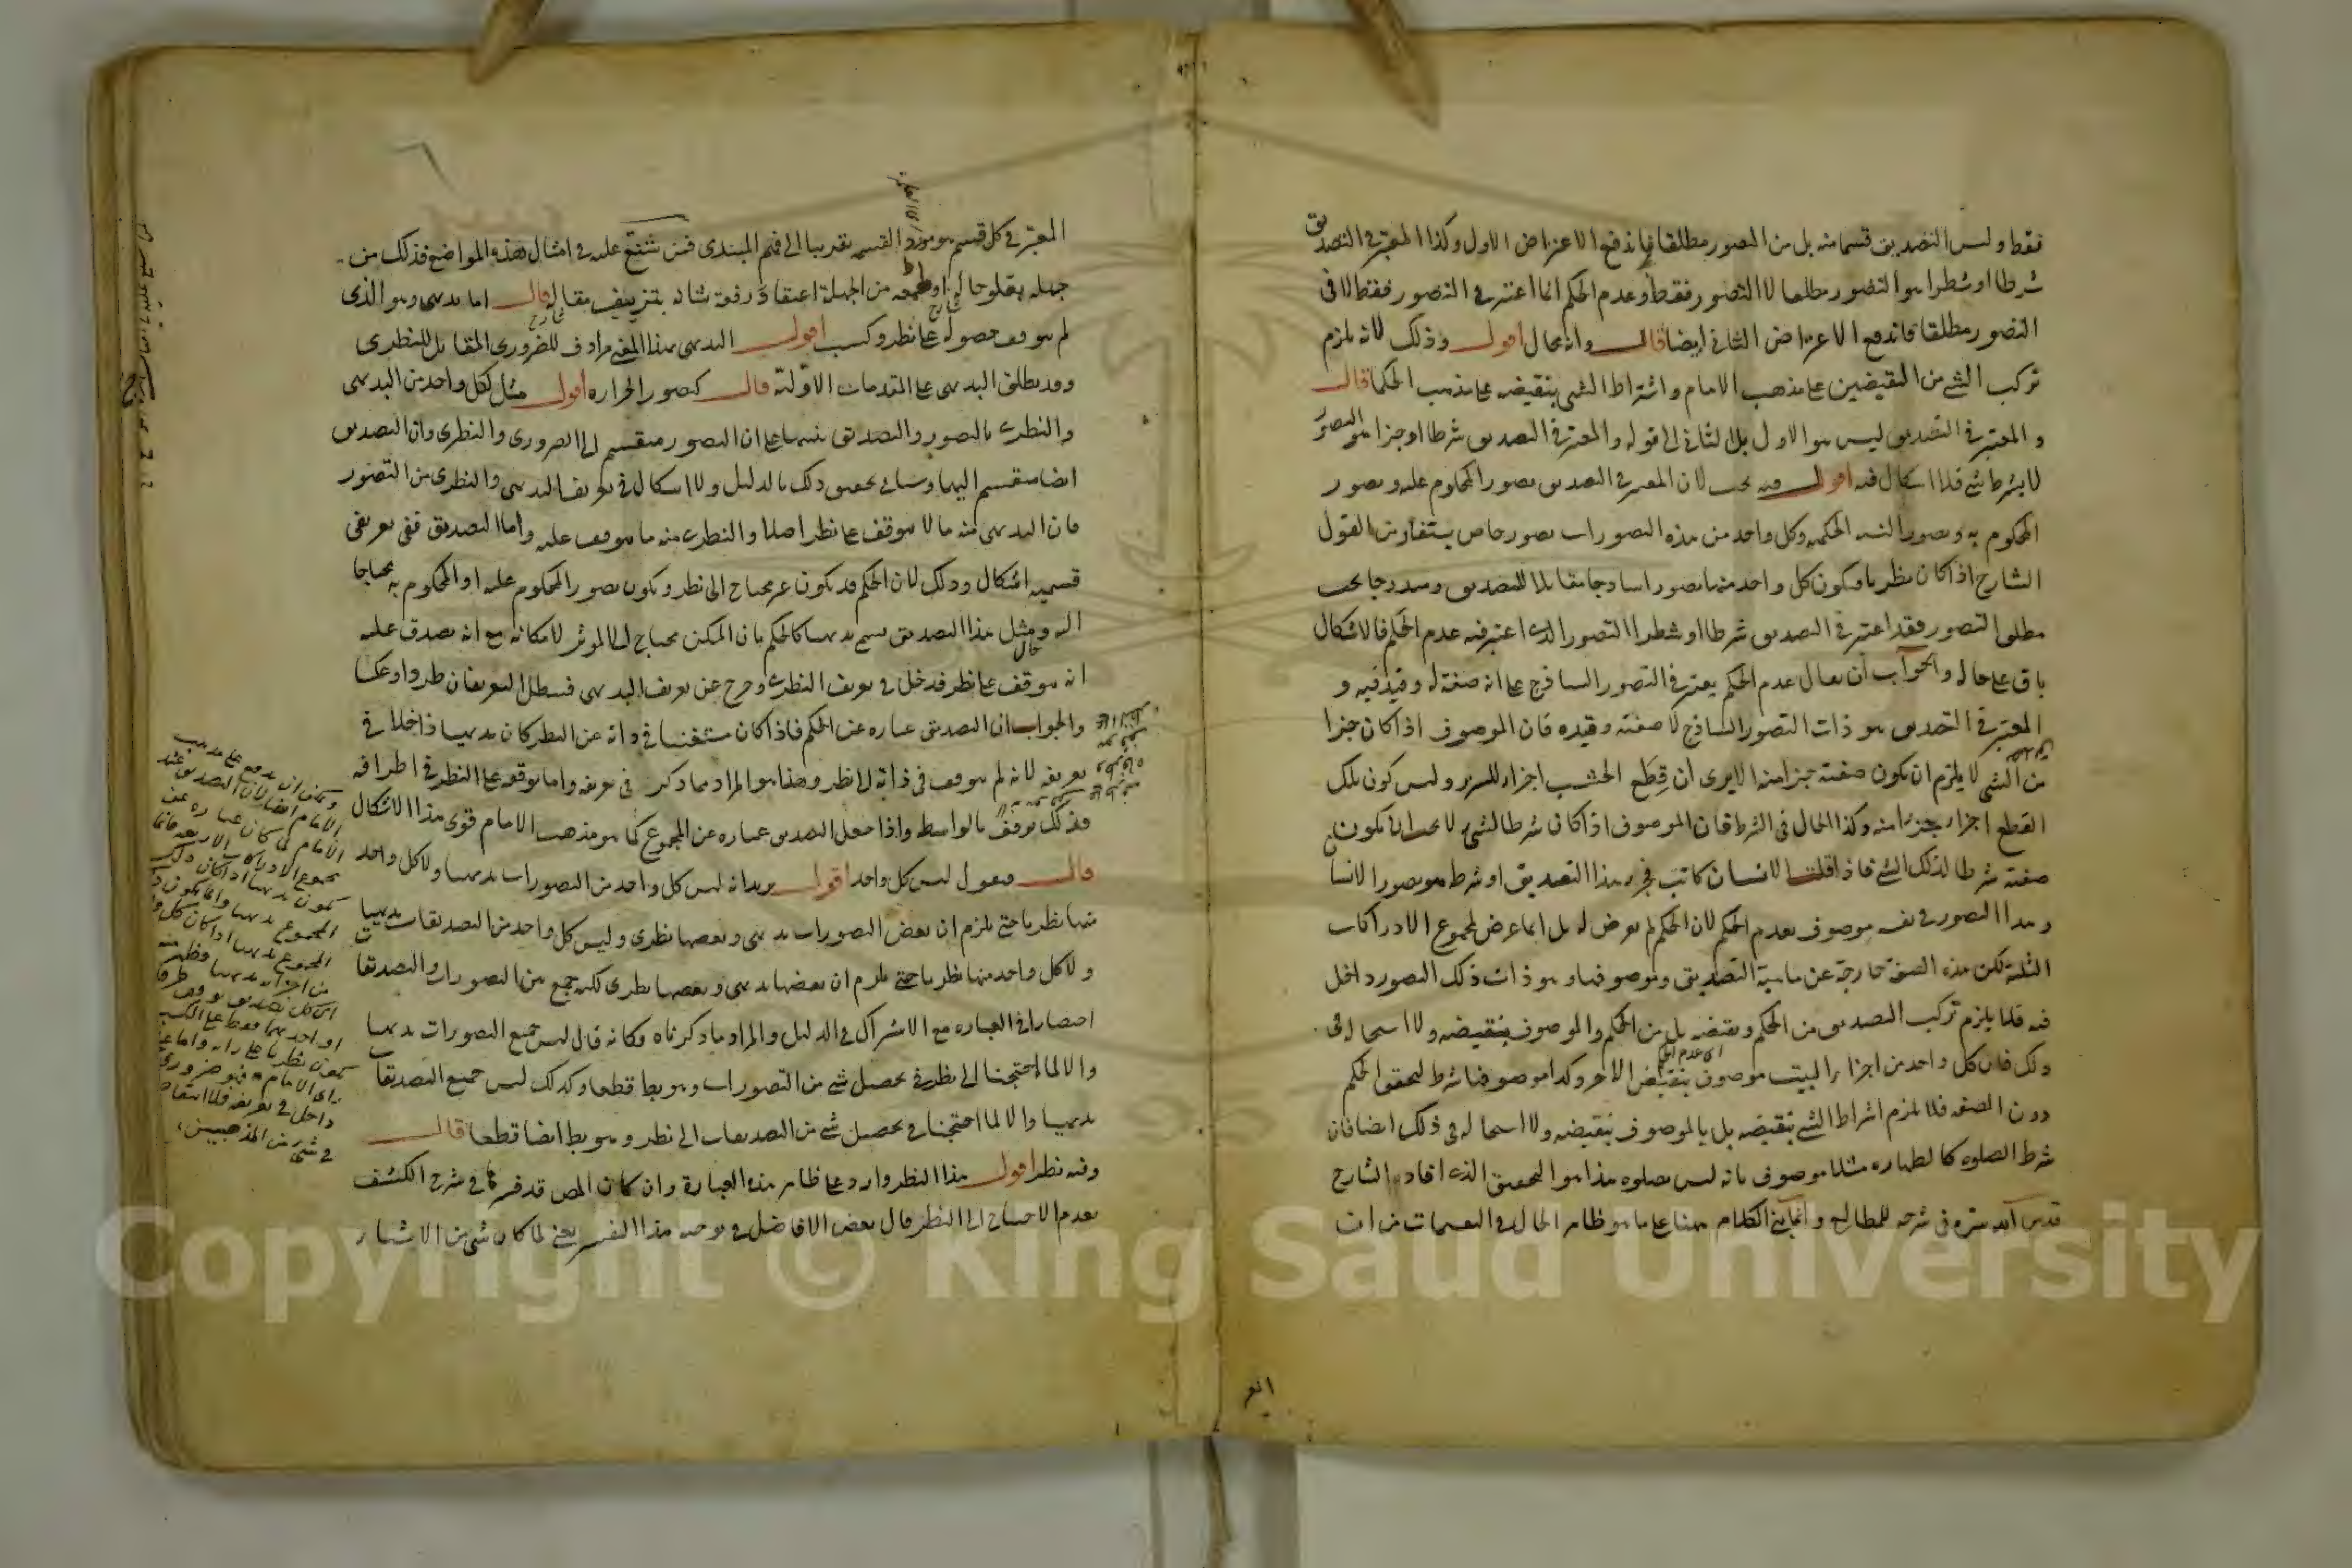 فقط وليس التصديق قسما منه بل من التصور مطلقا فاندفع الاعتراض الاول وكذا المعتبر في التصديق
شرطا او شطرا هو التصور مطلقا لا التصور فقط وعدم الحكم انما اعتبر في التصور فقط لا في
التصور مطلقا فاندفع الاعتراض الثاني ايضا قال وانه محال اقول وذلك لانه يلزم
تركب الشئ من النقيضين على مذهب الامام واشتراط الشئ بنقيضه على مذهب الحكما قال
و المعتبر في التصديق ليس هو الاول بل الثاني الى قوله والمعتبر في التصديق شرطا او جزا هو التصور
لا بشرط شئ فلا اشكال فيه اقول فيه بحث لان المعتبر في التصديق تصور المحكوم عليه وتصور
المحكوم به وتصور النسبه الحكميه وكل واحد من هذه التصورات تصور خاص يستفاد من القول
الشارح اذا كان نظريا فيكون كل واحد منها تصورا ساذجا مقابلا للتصديق ومندرجا تحت
مطلق التصور فقد اعتبر في التصديق شرطا او شطرا التصور الذى اعتبر فيه عدم الحكم فالاشكال
باق على حاله والجواب ان يقال عدم الحكم يعتبر في التصور الساذج على انه صفة له وقيد فيه و
المعتبر في التصديق هو ذات التصور الساذج لا صفته وقيده فان الموصوف اذا كان جزا
من الشئ لا يلزم ان يكون صفته جزا منه الا يرى ان قِطَع الخشب اجزاء للسرير وليس كون تلك
القطع اجزاء جزءا منه وكذا الحال في الشرط فان الموصوف اذا كان شرطا لشئ لا يجب ان يكون
صفته شرطا لذلك الشئ فاذا قلنا الانسان كاتب فجزء هذا التصديق او شرطه هو تصور الانسا
و هذا التصور في نفسه موصوف بعدم الحكم لان الحكم لم يعرض له بل انما عرض لمجموع الادراكات
الثلثة لكن هذه الصفة خارجة عن ماهية التصديق وموصوفها وهو ذات ذلك التصور داخل
فيه فلا يلزم تركب التصديق من الحكم ونقيضه بل من الحكم والموصوف بنقيضه ولا استحاله في
ذلك فان كل واحد من اجزاء البيت موصوف بنقيض الاخر وكذا موصوفها شرط لتحقق الحكم
دون الصفه فلا يلزم اشتراط الشئ بنقيضه بل بالموصوف بنقيضه ولا استحاله في ذلك ايضا فان
شرط الصلوه كالطهاره مثلا موصوف بانه ليس بصلوه هذا هو التحقيق الذى افاده الشارح
قدس الله سره في شرحه للمطالع وانما بنى الكلام ههنا على ما هو ظاهر الحال في التقسيمات من ان
المعتبر في كل قسم هو مورد القسمه تقريبا الى فهم المبتدى فمن شنّع عليه في امثال هذه المواضع فذلك من
جهله بعلو حاله او طمعه من الجهلة اعتقاد رفعة شانه بتزييف مقاله قال اما بديهى وهو الذى
لم يتوقف حصوله على نظر وكسب اقول البديهى بهذا المعنى مرادف للضرورى المقابل للنظرى
وقد يطلق البديهى على المقدمات الاولية قال كتصور الحراره اقول مثل لكل واحد من البديهى
والنظرى بالتصور والتصديق تنبيها على ان التصور منقسم الى الضرورى والنظرى وان التصديق
ايضا منقسم اليهما وسياتى تحقيق ذلك بالدليل ولا اشكال في تعريف البديهى والنظرى من التصور
فان البديهى منه ما لا يتوقف على نظر اصلا والنظرى منه ما يتوقف عليه واما التصديق ففى تعريفى
قسميه اشكال وذلك لان الحكم قد يكون غير محتاج الى نظر ويكون تصور المحكوم عليه او المحكوم به محتاجا
اليه ومثل هذا التصديق يسمى بديهيا كالحكم بان الممكن محتاج الى المؤثر لامكانه مع انه يصدق عليه
انه يتوقف على نظر فدخل في تعريف النظرى وخرج عن تعريف البديهى فيبطل التعريفان طردا وعكسا
والجواب ان التصديق عباره عن الحكم فاذا كان مستغنيا في ذاته عن النظر كان بديهيا داخلا في
تعريفه لانه لم يتوقف في ذاته على نظر وهذا هو المراد مما ذكر في تعريفه واما توقفه على النظر في اطرافه
فذلك توقف بالواسطه واذا جعل التصديق عباره عن المجموع كما هو مذهب الامام قوى هذا الاشكال
قال فنقول ليس كل واحد اقول يريد انه ليس كل واحد من التصورات بديهيا ولا كل واحد
منها نظريا حتى يلزم ان بعض التصورات بديهى وبعضها نظرى وليس كل واحد من التصديقات بديهيا
ولا كل واحد منها نظريا حتى يلزم ان بعضها بديهى وبعضها نظرى لكنه جمع بين التصورات والتصديقات
اختصارا في العباره مع الاشتراك في الدليل والمراد ما ذكرناه فكانه قال ليس جميع التصورات بديهيا
والا لما احتجنا الى نظر في تحصيل شئ من التصورات وهو بط قطعا وكذلك ليس جميع التصديقات
بديهيا والا لما احتجنا في تحصيل شئ من التصديقات الى نظر وهو بط ايضا قطعا قال
وفيه نظر اقول هذا النظر وارد على ظاهر هذه العبارة وان كان المص قد فسرها في شرح الكشف
بعدم الاحتياج الى النظر قال بعض الافاضل في توجيه هذا التفسير يعنى لما كان شئ من الاشياء
ويمكن ان يدفع على مذهب
الامام ايضا لان التصديق عند
الامام لما كان عبارة عن
مجموع الادراكات الاربعه فانما
يكون بديهيا اذا كان ذلك
المجموع بديهيا وانما يكون
المجموع بديهيا اذا كان كل
من اجزائه بديهيا وظهر منه
ان كل تصديق توقف طرفا
او احدهما فقط على الكسب
يكون نظريا على رايه واما على
راى الامام فهو ضرورى
داخل في تعريفه فلا انتقاض
في شئ من المذهبين
Copyright © King Saud University